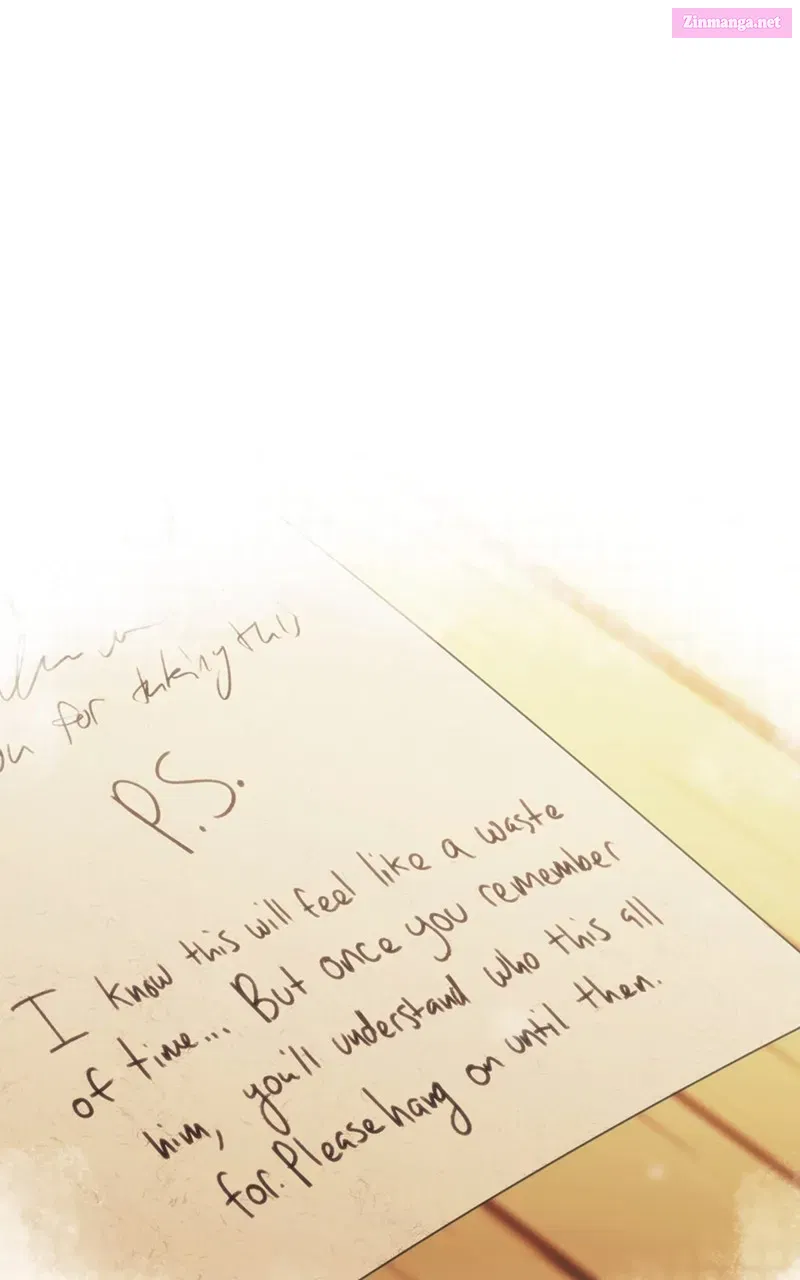 Zinmanga.net
for taking this
P.S.
I know this will feel like a waste
of time... But once you remember
him, you'll understand who this all
for. Please hang on until then.